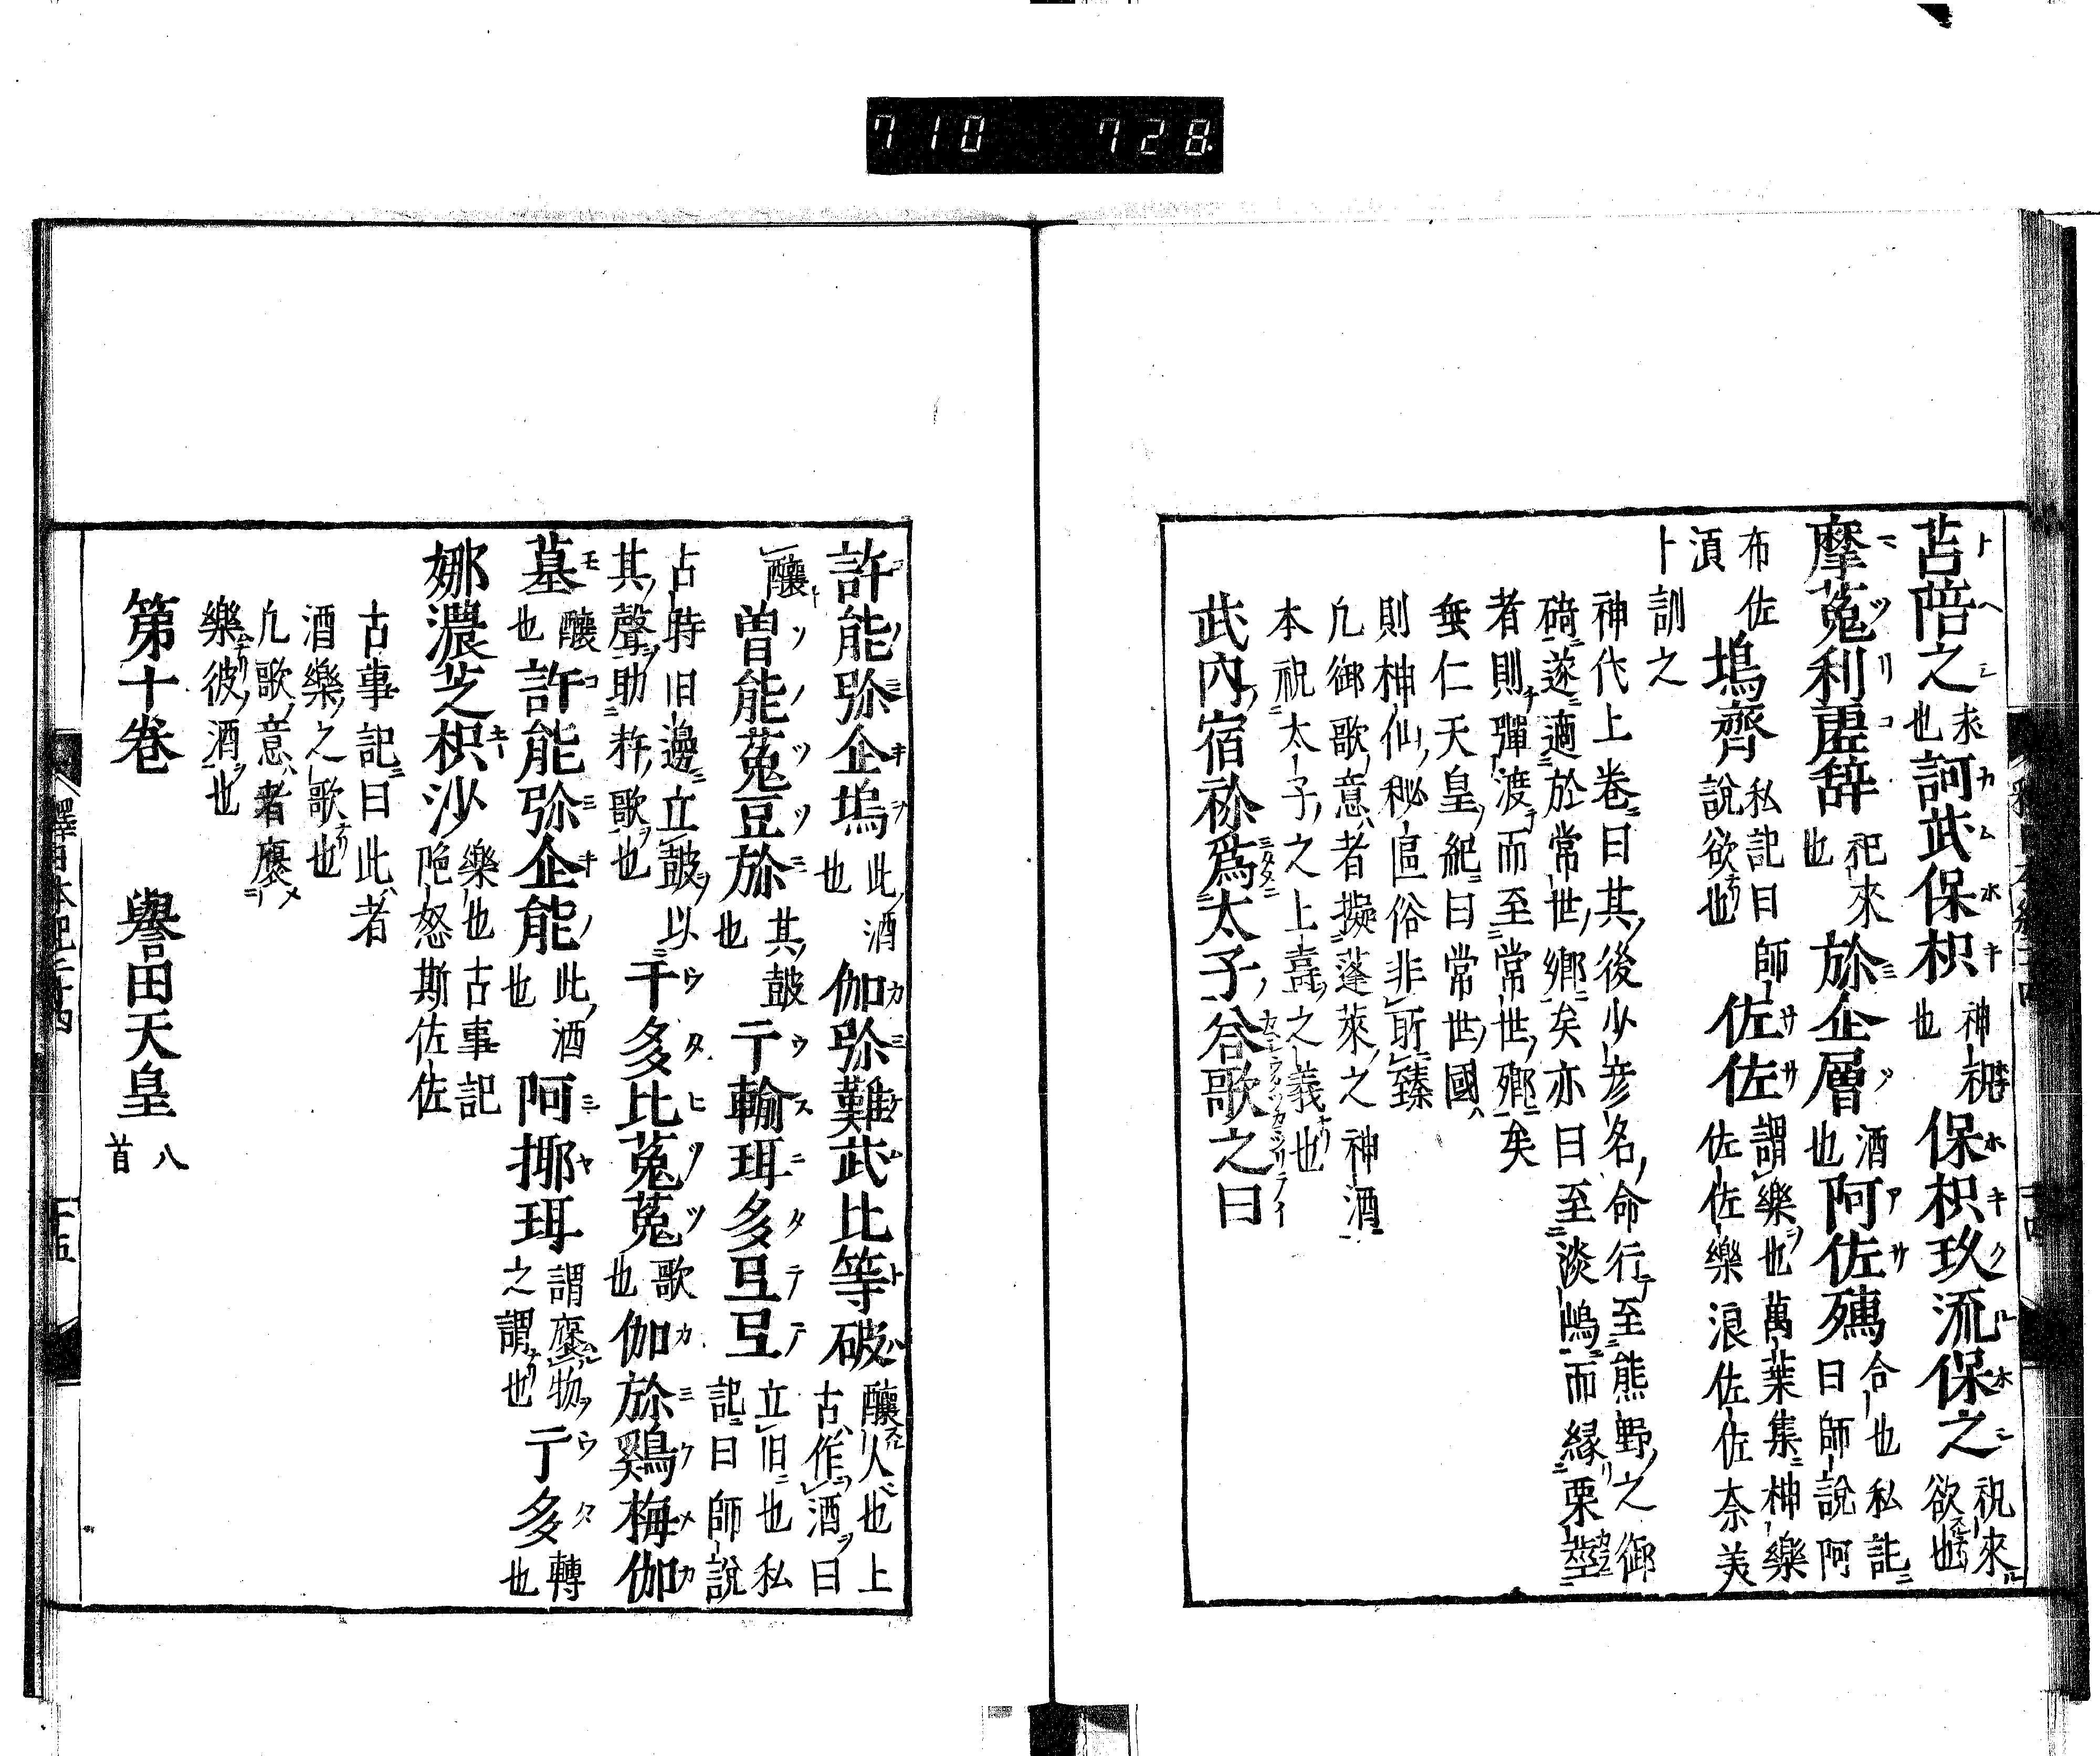 710 728
苫陪之求也訶武保枳神祝也保枳玖流保之祝來欲也
摩菟利虚辞祀來也於企層酒也阿佐孺合也私記曰師說阿
布佐須塢齊私記曰師說欲也佐佐謂樂也萬葉集神樂佐佐樂浪佐佐奈美
卜訓之
神代上卷曰其後少彦名命行至熊野之御
碕遂適於常世鄉矣亦曰至淡嶋而緣粟莖
者則彈渡而至常世鄉矣
垂仁天皇紀曰常世國
則神仙秘區俗非所臻
凢御歌意者擬蓬萊之神酒
本祝太子之上壽之義也
武內宿祢爲太子荅歌之曰
許能弥企塢此酒也伽弥難武比等破釀人也上古作酒曰
釀曽能菟豆弥其鼓也于輸珥多弖弖立旧也私記曰師說
占時旧邊立鼓以其聲助杵歌也于多比菟菟歌也伽弥鷄梅伽
墓釀也許能弥企能此酒也阿揶珥謂麼物之謂也于多轉也
娜濃芝枳沙樂也古事記陁怒斯佐佐
古事記曰此者
酒樂之歌也
凢歌意者麼
樂彼酒也
第十卷 譽田天皇八首
釋日本紀二十四 十五